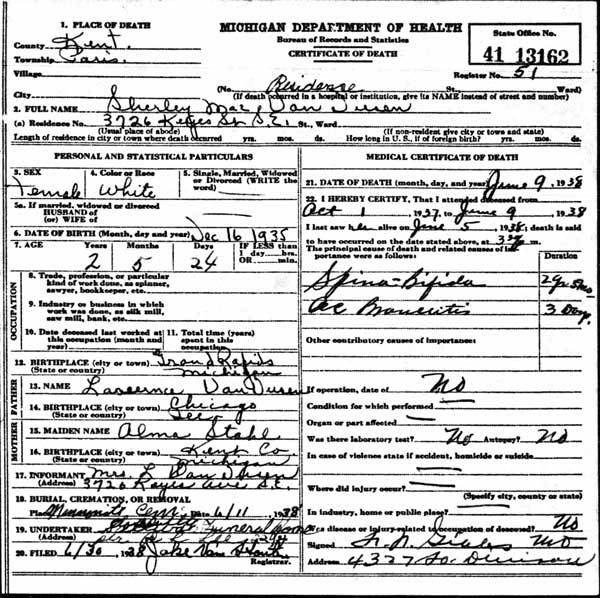 1. PLACE OF DEATH
County Kent.
Township Paris.
Village
City
MICHIGAN DEPARTMENT OF HEALTH
Bureau of Records and Statistics
CERTIFICATE OF DEATH
State Office No.
41 13162
Register No. 51
(No. Residence St. Ward)
(If death occurred in a hospital or institution, give its NAME instead of street and number)
2. FULL NAME Sherley Mae Van Dusen
(a) Residence No. 3726 Keyes St. S.E. St., Ward.
(Usual place of abode) (If non-resident give city or town and state)
Length of residence in city or town where death occurred yrs. mos. ds. How long in U. S., if of foreign birth? yrs. mos. ds.
PERSONAL AND STATISTICAL PARTICULARS
3. SEX
Female
4. Color or Race
White
5. Single, Married, Widowed or Divorced (WRITE the word)
5a. If married, widowed or divorced
HUSBAND of
(or) WIFE of
6. DATE OF BIRTH (Month, day and year) Dec 16 1935
7. AGE Years Months Days IF LESS than 1 day hrs. OR min.
2 5 24
OCCUPATION
8. Trade, profession, or particular kind of work done, as spinner, sawyer, bookkeeper, etc.
9. Industry or business in which work was done, as silk mill, saw mill, bank, etc.
10. Date deceased last worked at this occupation (month and year)
11. Total time (years) spent in this occupation
12. BIRTHPLACE (city or town) Grand Rapids
(State or country) Michigan
FATHER
13. NAME Van Dusen
14. BIRTHPLACE (city or town) Chicago
(State or country)
MOTHER
15. MAIDEN NAME Alma Stahl
16. BIRTHPLACE (city or town) Kent Co.
(State or country) Michigan
17. INFORMANT Mrs. L Van Dusen
(Address) 3726 Keyes Ave S.E.
18. BURIAL, CREMATION, OR REMOVAL
Place Cem Date 6/11 1938
19. UNDERTAKER Funeral Home
(Address)
20. FILED 6/30, 1938 Jake Van
Registrar.
MEDICAL CERTIFICATE OF DEATH
21. DATE OF DEATH (month, day, and year) June 9 1938
22. I HEREBY CERTIFY, That I attended deceased from
Oct 1, 1937, to June 9, 1938
I last saw her alive on June 5, 1938; death is said
to have occurred on the date stated above, at 3 m.
The principal cause of death and related causes of importance were as follows:
Duration
Spina-Bifida 2 yr 5 mo
Ac Broncitis 3 Days
Other contributory causes of importance:
If operation, date of No
Condition for which performed
Organ or part affected
Was there laboratory test? No Autopsy? No
In case of violence state if accident, homicide or suicide
Where did injury occur?
(Specify city, county or state)
In industry, home or public place?
Was disease or injury related to occupation of deceased? No
Signed MD
Address 4327 So. Division